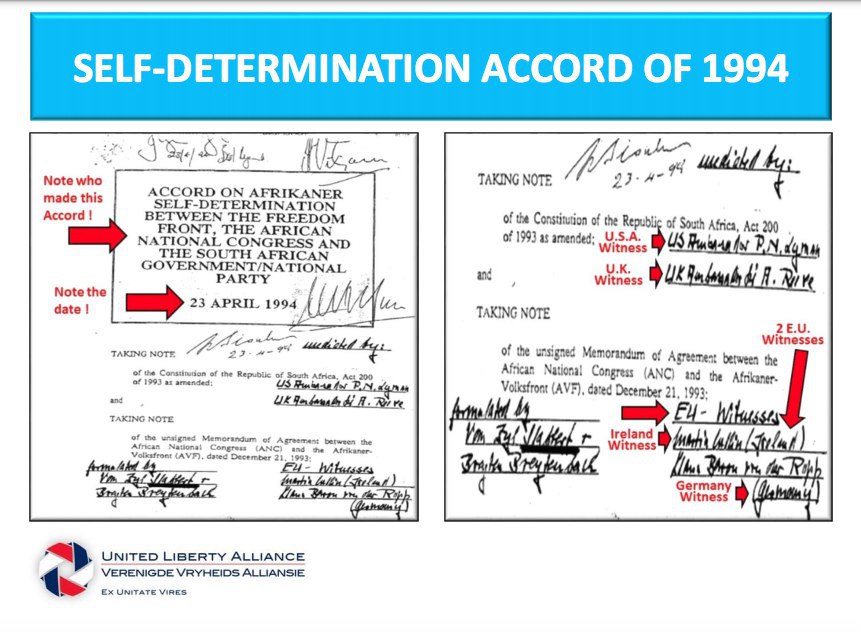 SELF-DETERMINATION ACCORD OF 1994
Note who
made this
Accord !
ACCORD ON AFRIKANER
SELF-DETERMINATION
BETWEEN THE FREEDOM
FRONT, THE AFRICAN
NATIONAL CONGRESS AND
THE SOUTH AFRICAN
GOVERNMENT/NATIONAL
PARTY
Note the
date !
23 APRIL 1994
TAKING NOTE
23-4-94
of the Constitution of the Republic of South Africa, Act 200
of 1993 as amended;
US Ambassador P.N. Lyman
and
UK Ambassador A. Reeve
TAKING NOTE
of the unsigned Memorandum of Agreement between the
African National Congress (ANC) and the Afrikaner-
Volksfront (AVF), dated December 21, 1993;
formulated by
EU- Witnesses
Van Zyl Slabbert +
(Ireland)
Breyten Breytenbach
Klaus Baron von der Ropp
(Germany)
TAKING NOTE
23-4-94
of the Constitution of the Republic of South Africa, Act 200
of 1993 as amended;
U.S.A.
Witness
US Ambassador P.N. Lyman
U.K.
Witness
UK Ambassador A. Reeve
and
TAKING NOTE
2 E.U.
Witnesses
of the unsigned Memorandum of Agreement between the
African National Congress (ANC) and the Afrikaner-
Volksfront (AVF), dated December 21, 1993;
formulated by
EU- Witnesses
Van Zyl Slabbert +
Ireland
Witness
(Ireland)
Breyten Breytenbach
Klaus Baron von der Ropp
Germany
Witness
(Germany)
UNITED LIBERTY ALLIANCE
VERENIGDE VRYHEIDS ALLIANSIE
EX UNITATE VIRES